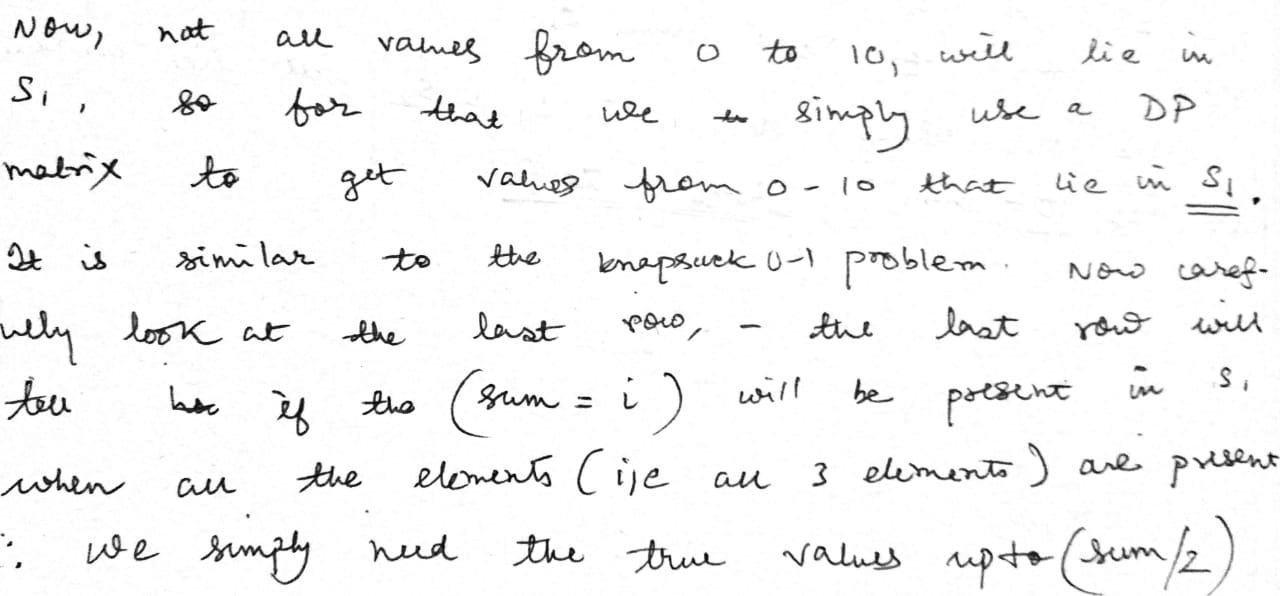 Now, not all values from 0 to 10, will lie in
S1, so for that we simply use a DP
matrix to get values from 0-10 that lie in S1.
It is similar to the knapsack 0-1 problem. Now caref-
ully look at the last row, - the last row will
tell if the (sum = i) will be present in S1
when all the elements (i,e all 3 elements) are present
∴ we simply need the true values upto (sum/2)